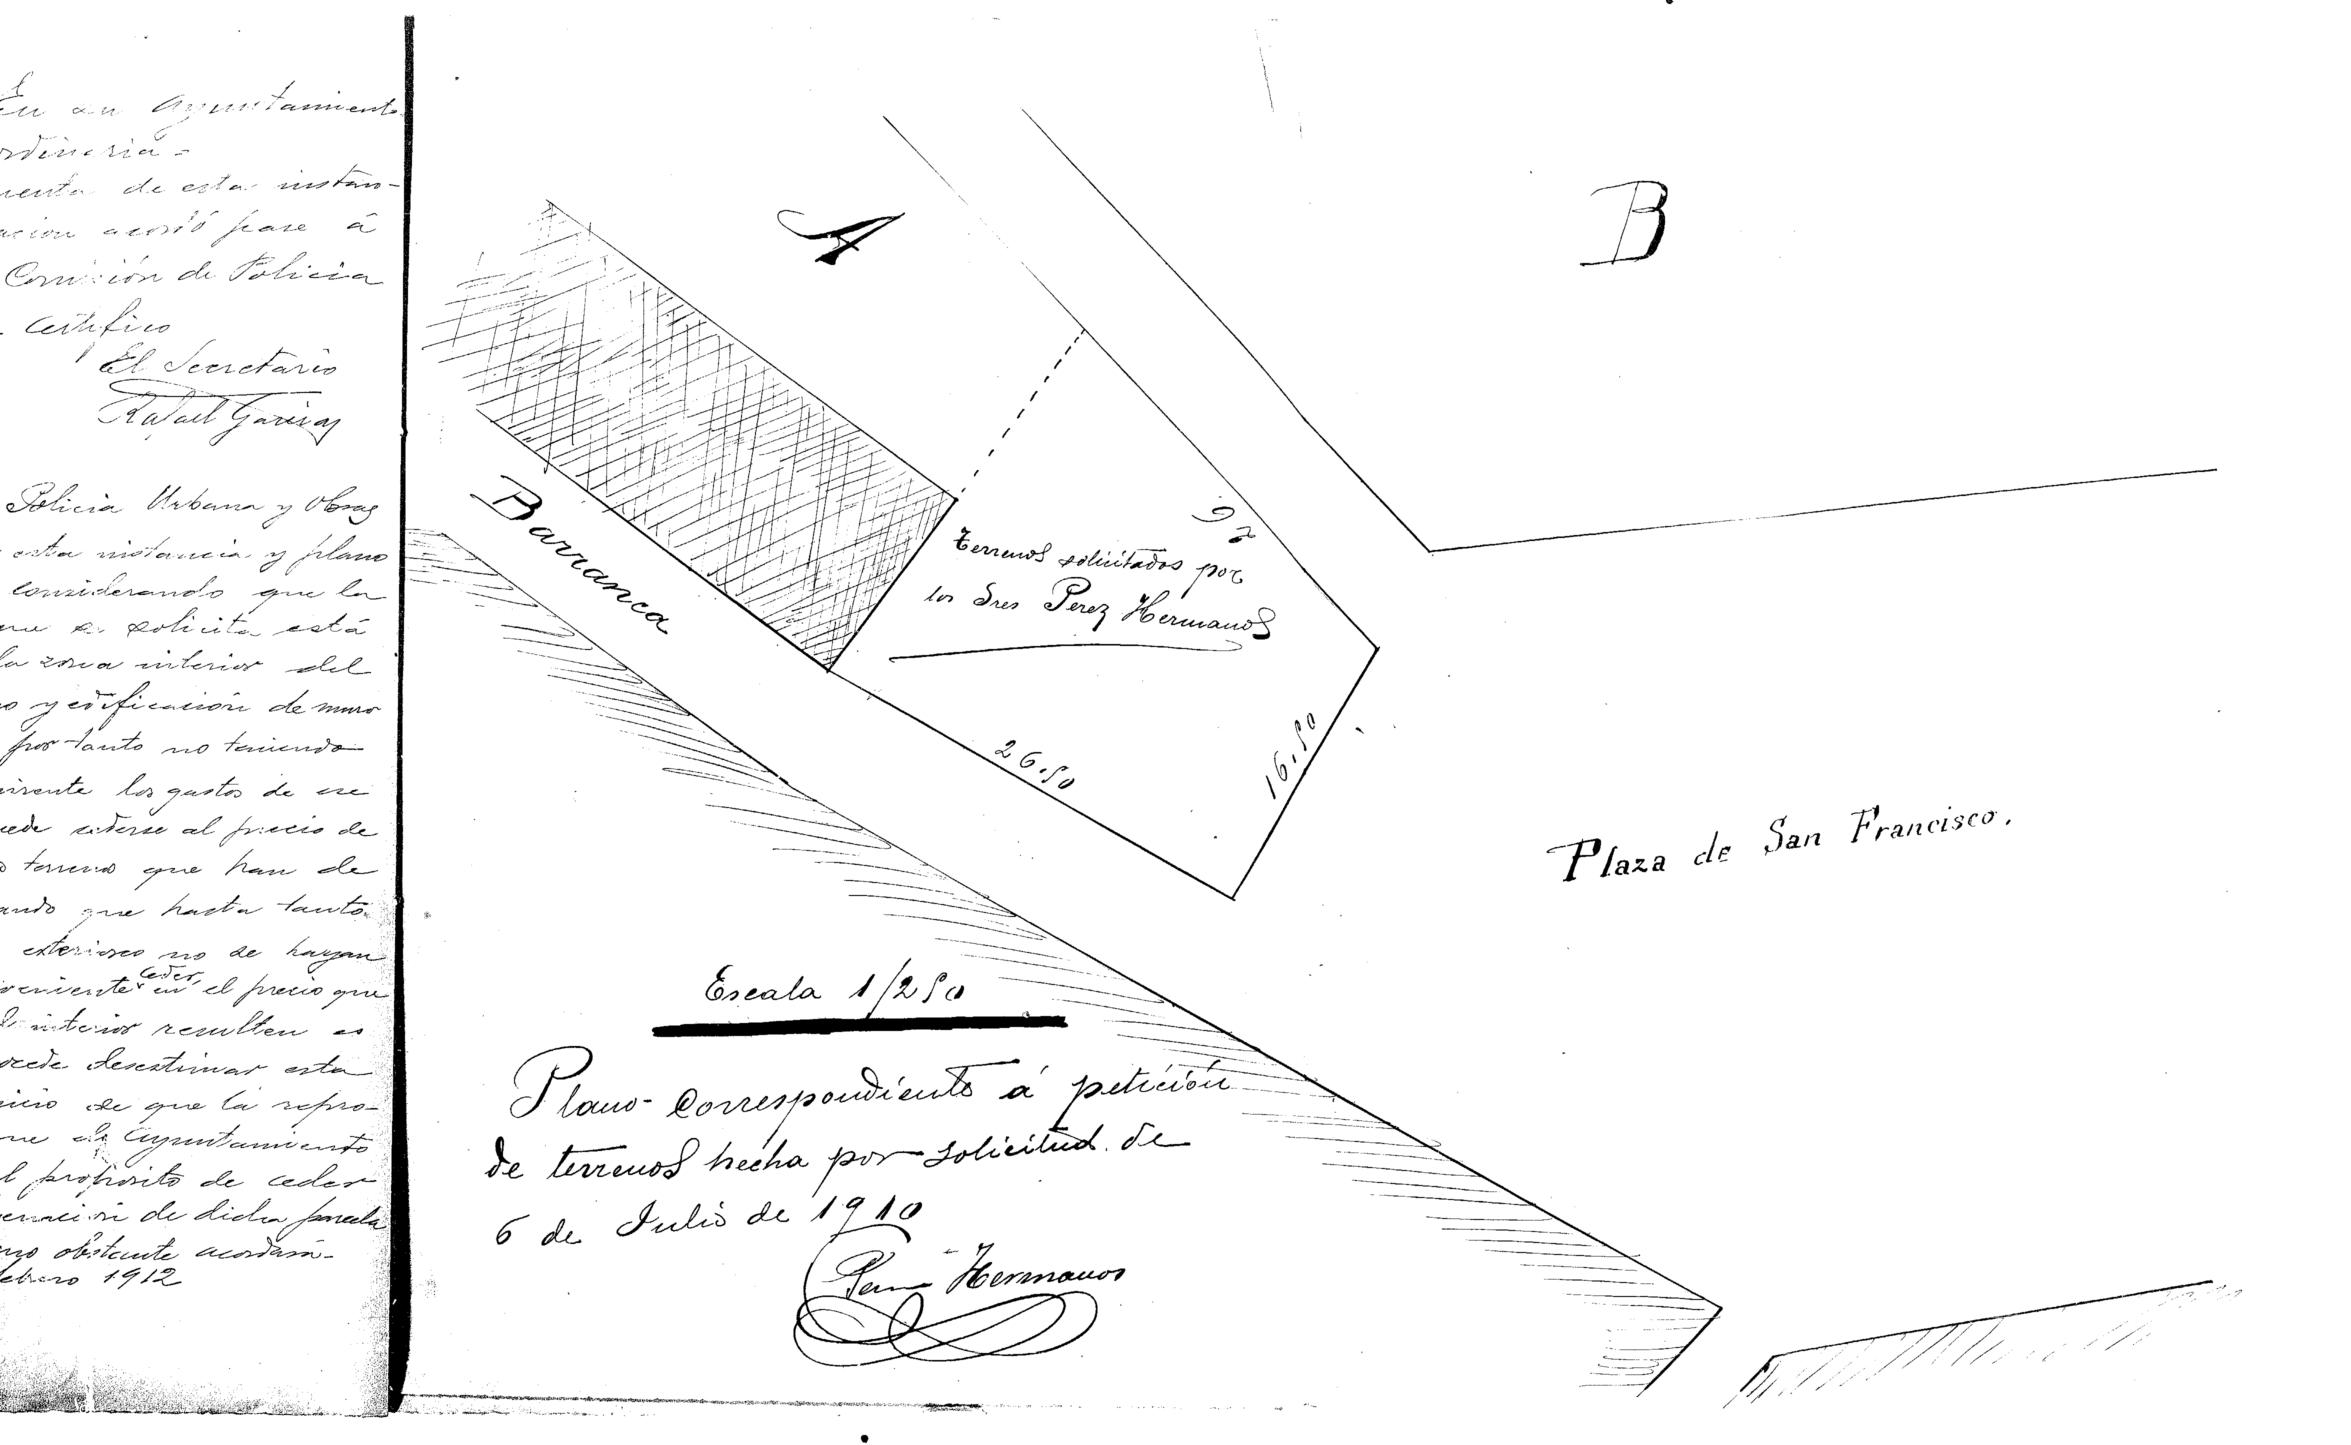 En un Ayuntamiento
de esta instan-
acordó pase á
Comisión de Policia
Certifico
El Secretario
Rafael
Policia Urbana y Obras
esta instancia y plano
considerando que la
solicita está
la zona interior del
y edificación de muro
por tanto no teniendo
los gastos de ese
cederse al precio de
terreno que han de
que hasta tanto
exteriores no se hayan
ceder
en el precio que
interior resulten es
desestimar esta
de que la repro-
Ayuntamiento
propósito de ceder
de dicha parcela
no obstante acordará-
1912
A
B
Barranca
26
terrenos solicitados por
los Sres Perez Hermanos
26.50
16.50
Plaza de San Francisco.
Escala 1/250
Plano correspondiente á petición
de terrenos hecha por solicitud de
6 de Julio de 1910
Hermanos